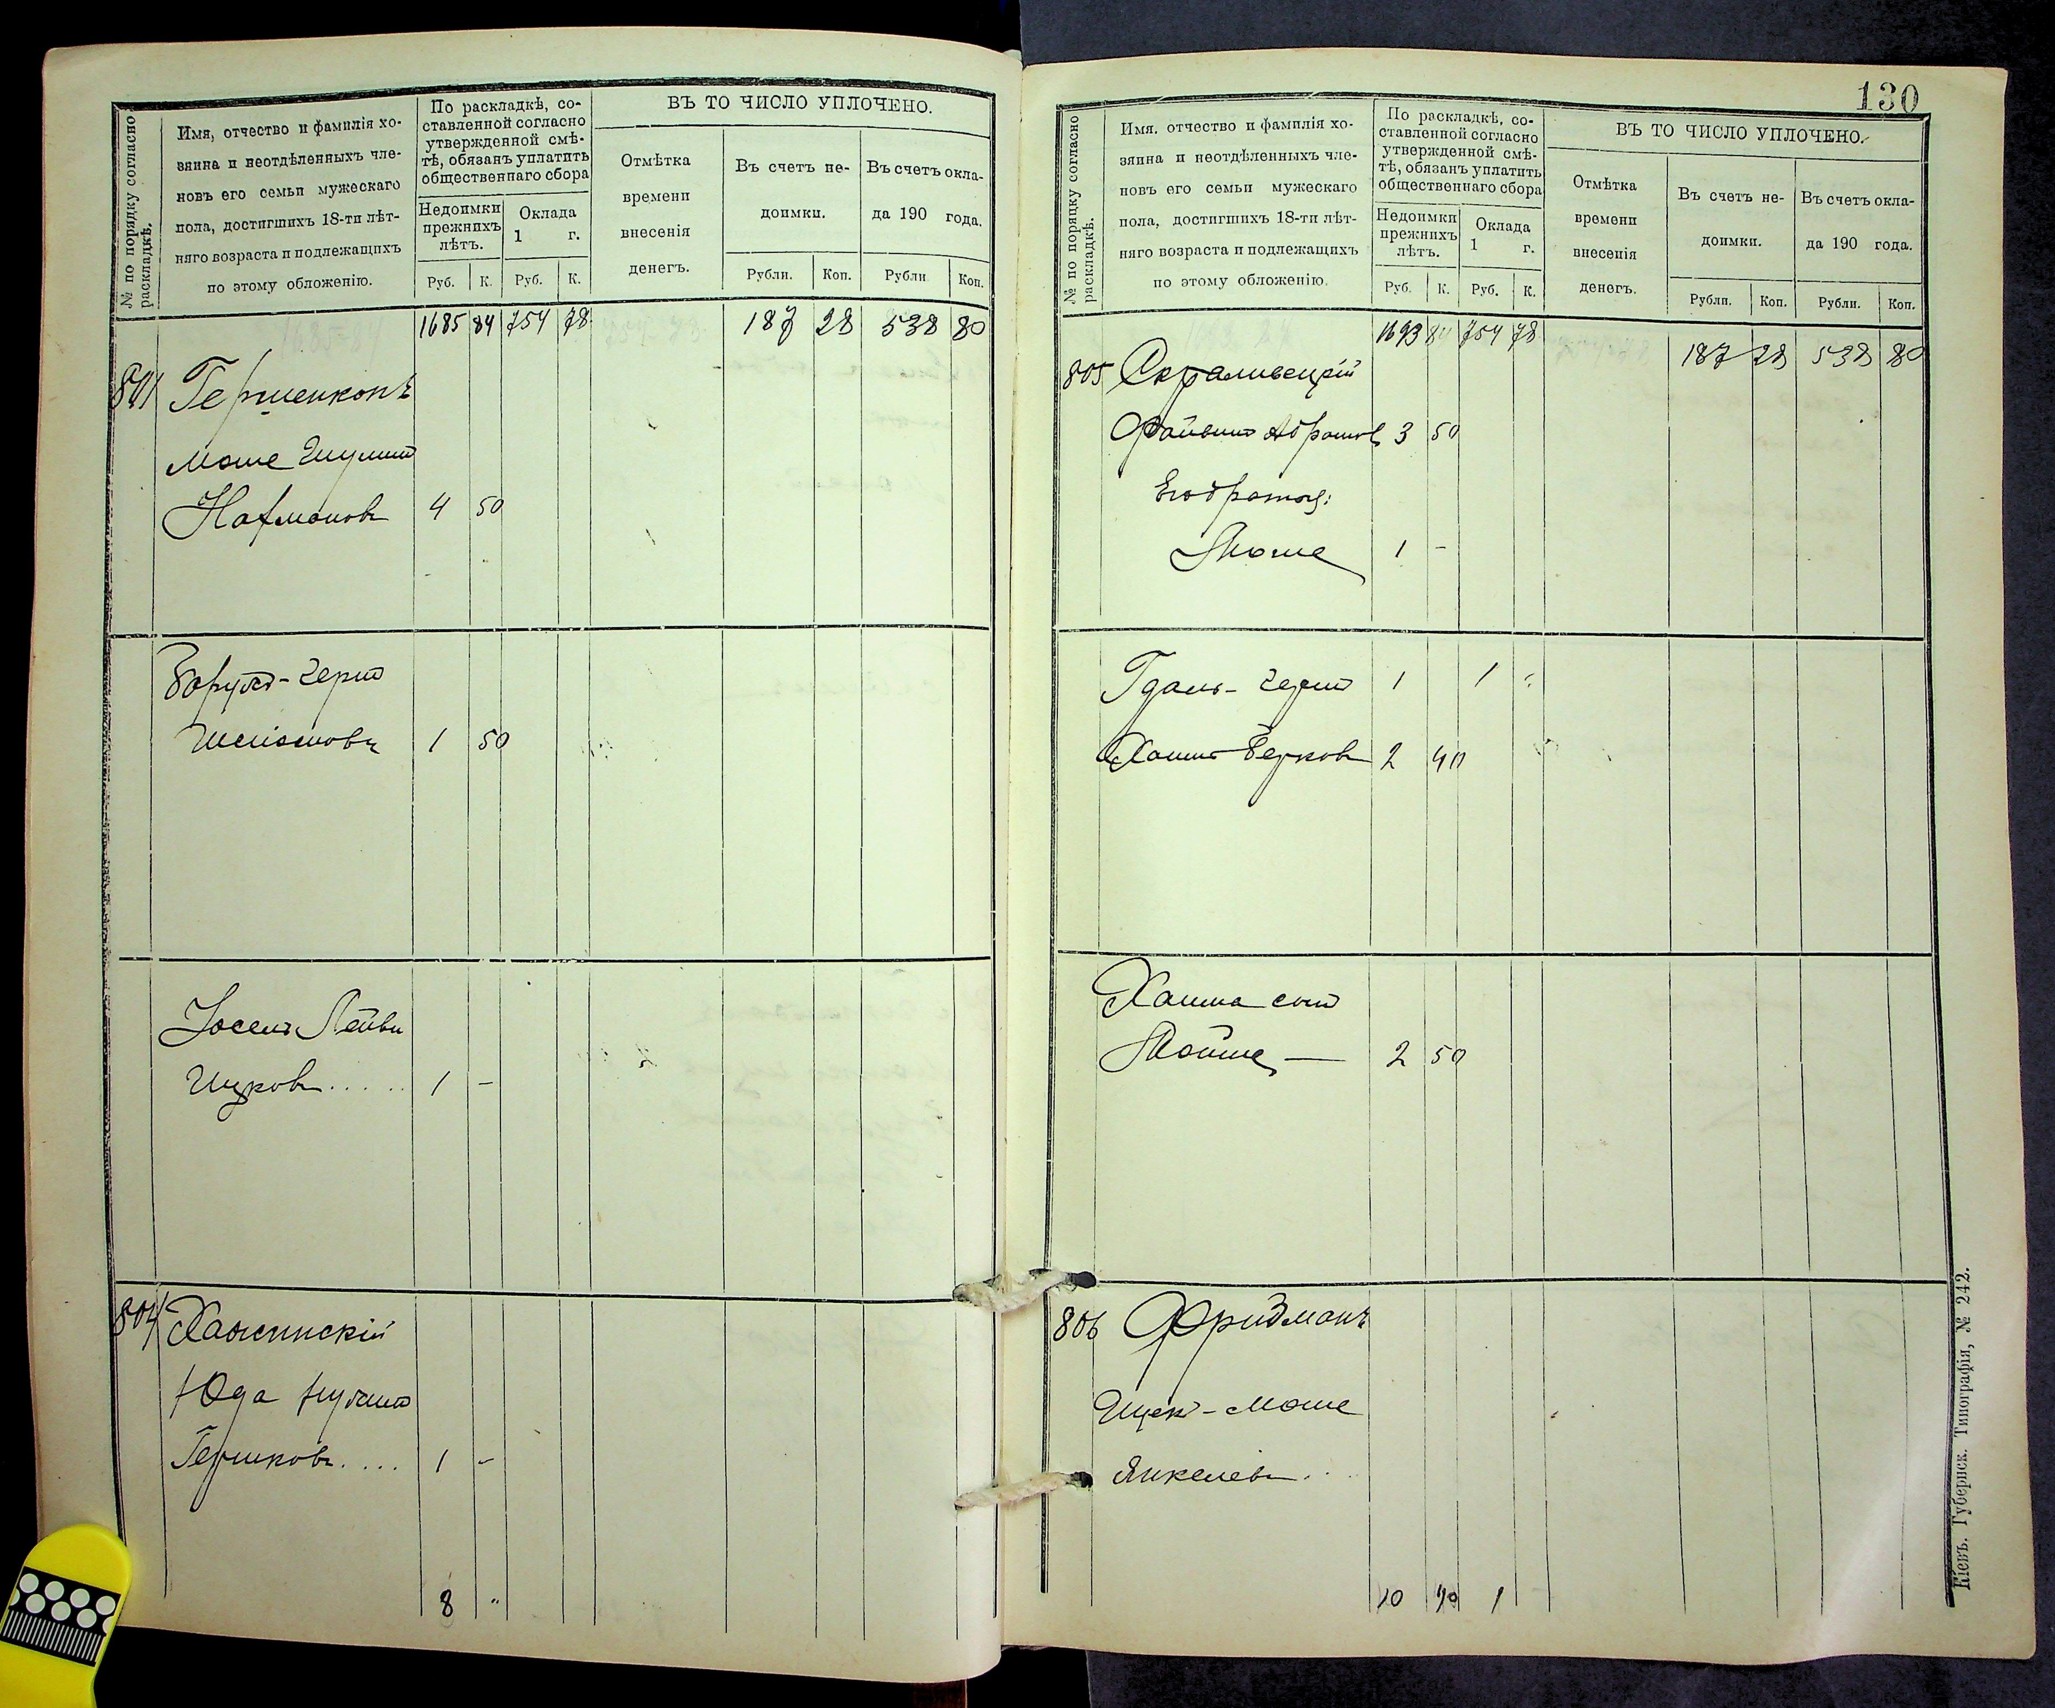 № по порядку согласно раскладкѣ.
Имя, отчество и фамилія хо-
зяина и неотдѣленныхъ чле-
новъ его семьи мужескаго
пола, достигшихъ 18-ти лѣт-
няго возраста и подлежащихъ
по этому обложенію.
По раскладкѣ, со-
ставленной согласно
утвержденной смѣ-
тѣ, обязанъ уплатить
общественнаго сбора
Недоимки прежнихъ лѣтъ.
Оклада 1 г.
Руб. К. Руб. К.
ВЪ ТО ЧИСЛО УПЛОЧЕНО.
Отмѣтка времени внесенія денегъ.
Въ счетъ не-
доимки.
Въ счетъ окла-
да 190 года.
Рубли. Коп. Рубли Коп.
1685 84 754 78 187 28 538 80
Гершенконъ
Моше
Нахмановъ 4 50
Борухъ-Герш
1 50
Іосель Лейви
Ицковъ..... 1 -
804
Юда
Гершковъ.... 1 -
8 "
130
№ по порядку согласно раскладкѣ.
Имя, отчество и фамилія хо-
зяина и неотдѣленныхъ чле-
новъ его семьи мужескаго
пола, достигшихъ 18-ти лѣт-
няго возраста и подлежащихъ
по этому обложенію.
По раскладкѣ, со-
ставленной согласно
утвержденной смѣ-
тѣ, обязанъ уплатить
общественнаго сбора
Недоимки прежнихъ лѣтъ.
Оклада 1 г.
Руб. К. Руб. К.
ВЪ ТО ЧИСЛО УПЛОЧЕНО.
Отмѣтка времени внесенія денегъ.
Въ счетъ не-
доимки.
Въ счетъ окла-
да 190 года.
Рубли. Коп. Рубли. Коп.
1693 84 754 78 187 28 538 80
805
Абрамов 3 50
Его братья:
Мошe 1 -
Гдаль- 1 1
Берковъ 2 40
Хаима сын
Мойше — 2 50
806 Фридманъ
Ицек-Моше
Янкелевъ..
10 40 1
Кіевъ. Губернск. Типографія, № 242.